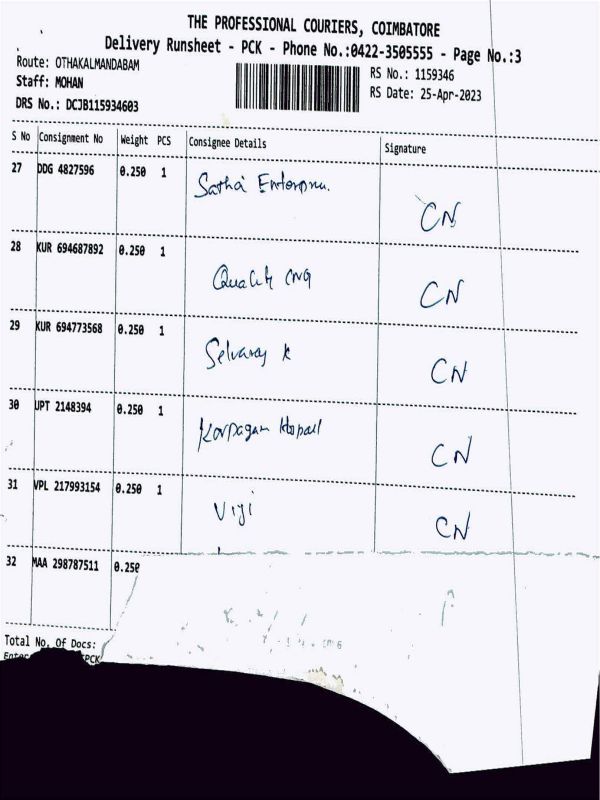 THE PROFESSIONAL COURIERS, COIMBATORE
Delivery Runsheet - PCK - Phone No.:0422-3505555 - Page No.:3
Route: OTHAKALMANDABAM
Staff: MOHAN
DRS No.: DCJB115934603
RS No.: 1159346
RS Date: 25-Apr-2023
S No Consignment No Weight PCS Consignee Details Signature
27 DDG 4827596 0.250 1 Sathai CN
28 KUR 694687892 0.250 1 CNG CN
29 KUR 694773568 0.250 1 Selvaraj K CN
30 UPT 2148394 0.250 1 Karpagam CN
31 VPL 217993154 0.250 1 Viji CN
32 MAA 298787511 0.250
Total No. Of Docs: